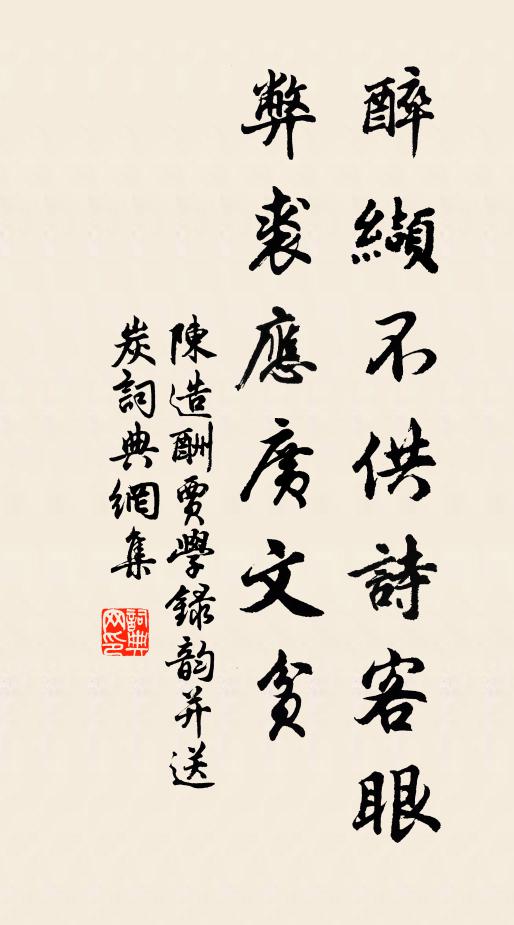 醉纈不供詩客眼
弊裘應廣文貧
陳造酬賈學録韵并送
炭詞典網集
詞典网印